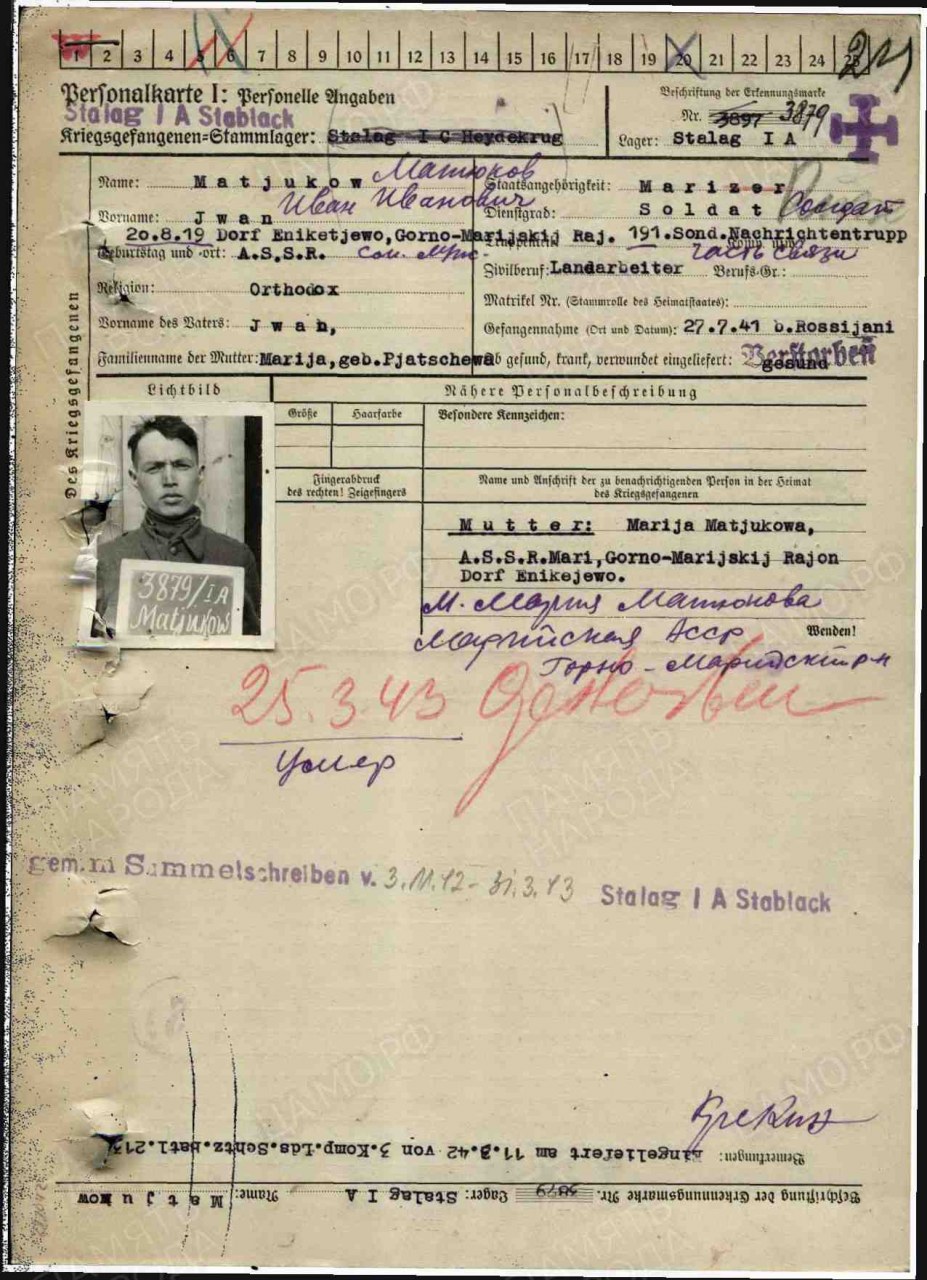 1 2 3 4 5 6 7 8 9 10 11 12 13 14 15 16 17 18 19 20 21 22 23 24 25
21
Personalkarte I: Personelle Angaben
Beschriftung der Erkennungsmarke
Stalag I A Stablack
Nr. 3897 3879
Kriegsgefangenen=Stammlager: Stalag I C Heydekrug
Lager: Stalag I A
Des Kriegsgefangenen
Name: Matjukow Матюков
Staatsangehörigkeit: Marizer
Vorname: Jwan Иван Иванович
Dienstgrad: Soldat Солдат
20.8.19 Dorf Eniketjewo,Gorno-Marijskij Raj.
191.Sond.Nachrichtentrupp
Geburtstag und -ort: A.S.S.R.
часть связи
Zivilberuf: Landarbeiter Berufs-Gr.:
Religion: Orthodox
Matrikel Nr. (Stammrolle des Heimatstaates):
Vorname des Vaters: Jwan,
Gefangennahme (Ort und Datum): 27.7.41 b.Rossijani
Familienname der Mutter: Marija,geb.Pjatschewa
Ob gesund, krank, verwundet eingeliefert: gesund
Verstorben
Lichtbild
Nähere Personalbeschreibung
Größe
Haarfarbe
Besondere Kennzeichen:
Fingerabdruck
des rechten! Zeigefingers
Name und Anschrift der zu benachrichtigenden Person in der Heimat
des Kriegsgefangenen
3879/IA
Matjukow
Mutter: Marija Matjukowa,
A.S.S.R.Mari,Gorno-Marijskij Rajon
Dorf Enikejewo.
М. Мария Матюкова
Марийская Асср
Wenden!
Горно-Марийский р-н
25.3.43 gestorben
Умер
gem. m Sammelschreiben v. 3.11.42 - 31.3.43 Stalag I A Stablack
Bemerkungen: Eingeliefert am 11.3.42 von 3.Komp.Lds.Schtz.Batl.213
Beschriftung der Erkennungsmarke Nr. 3879 Lager: Stalag I A Name: Matjukow
ПАМЯТЬ НАРОДА
ЦАМО.РФ